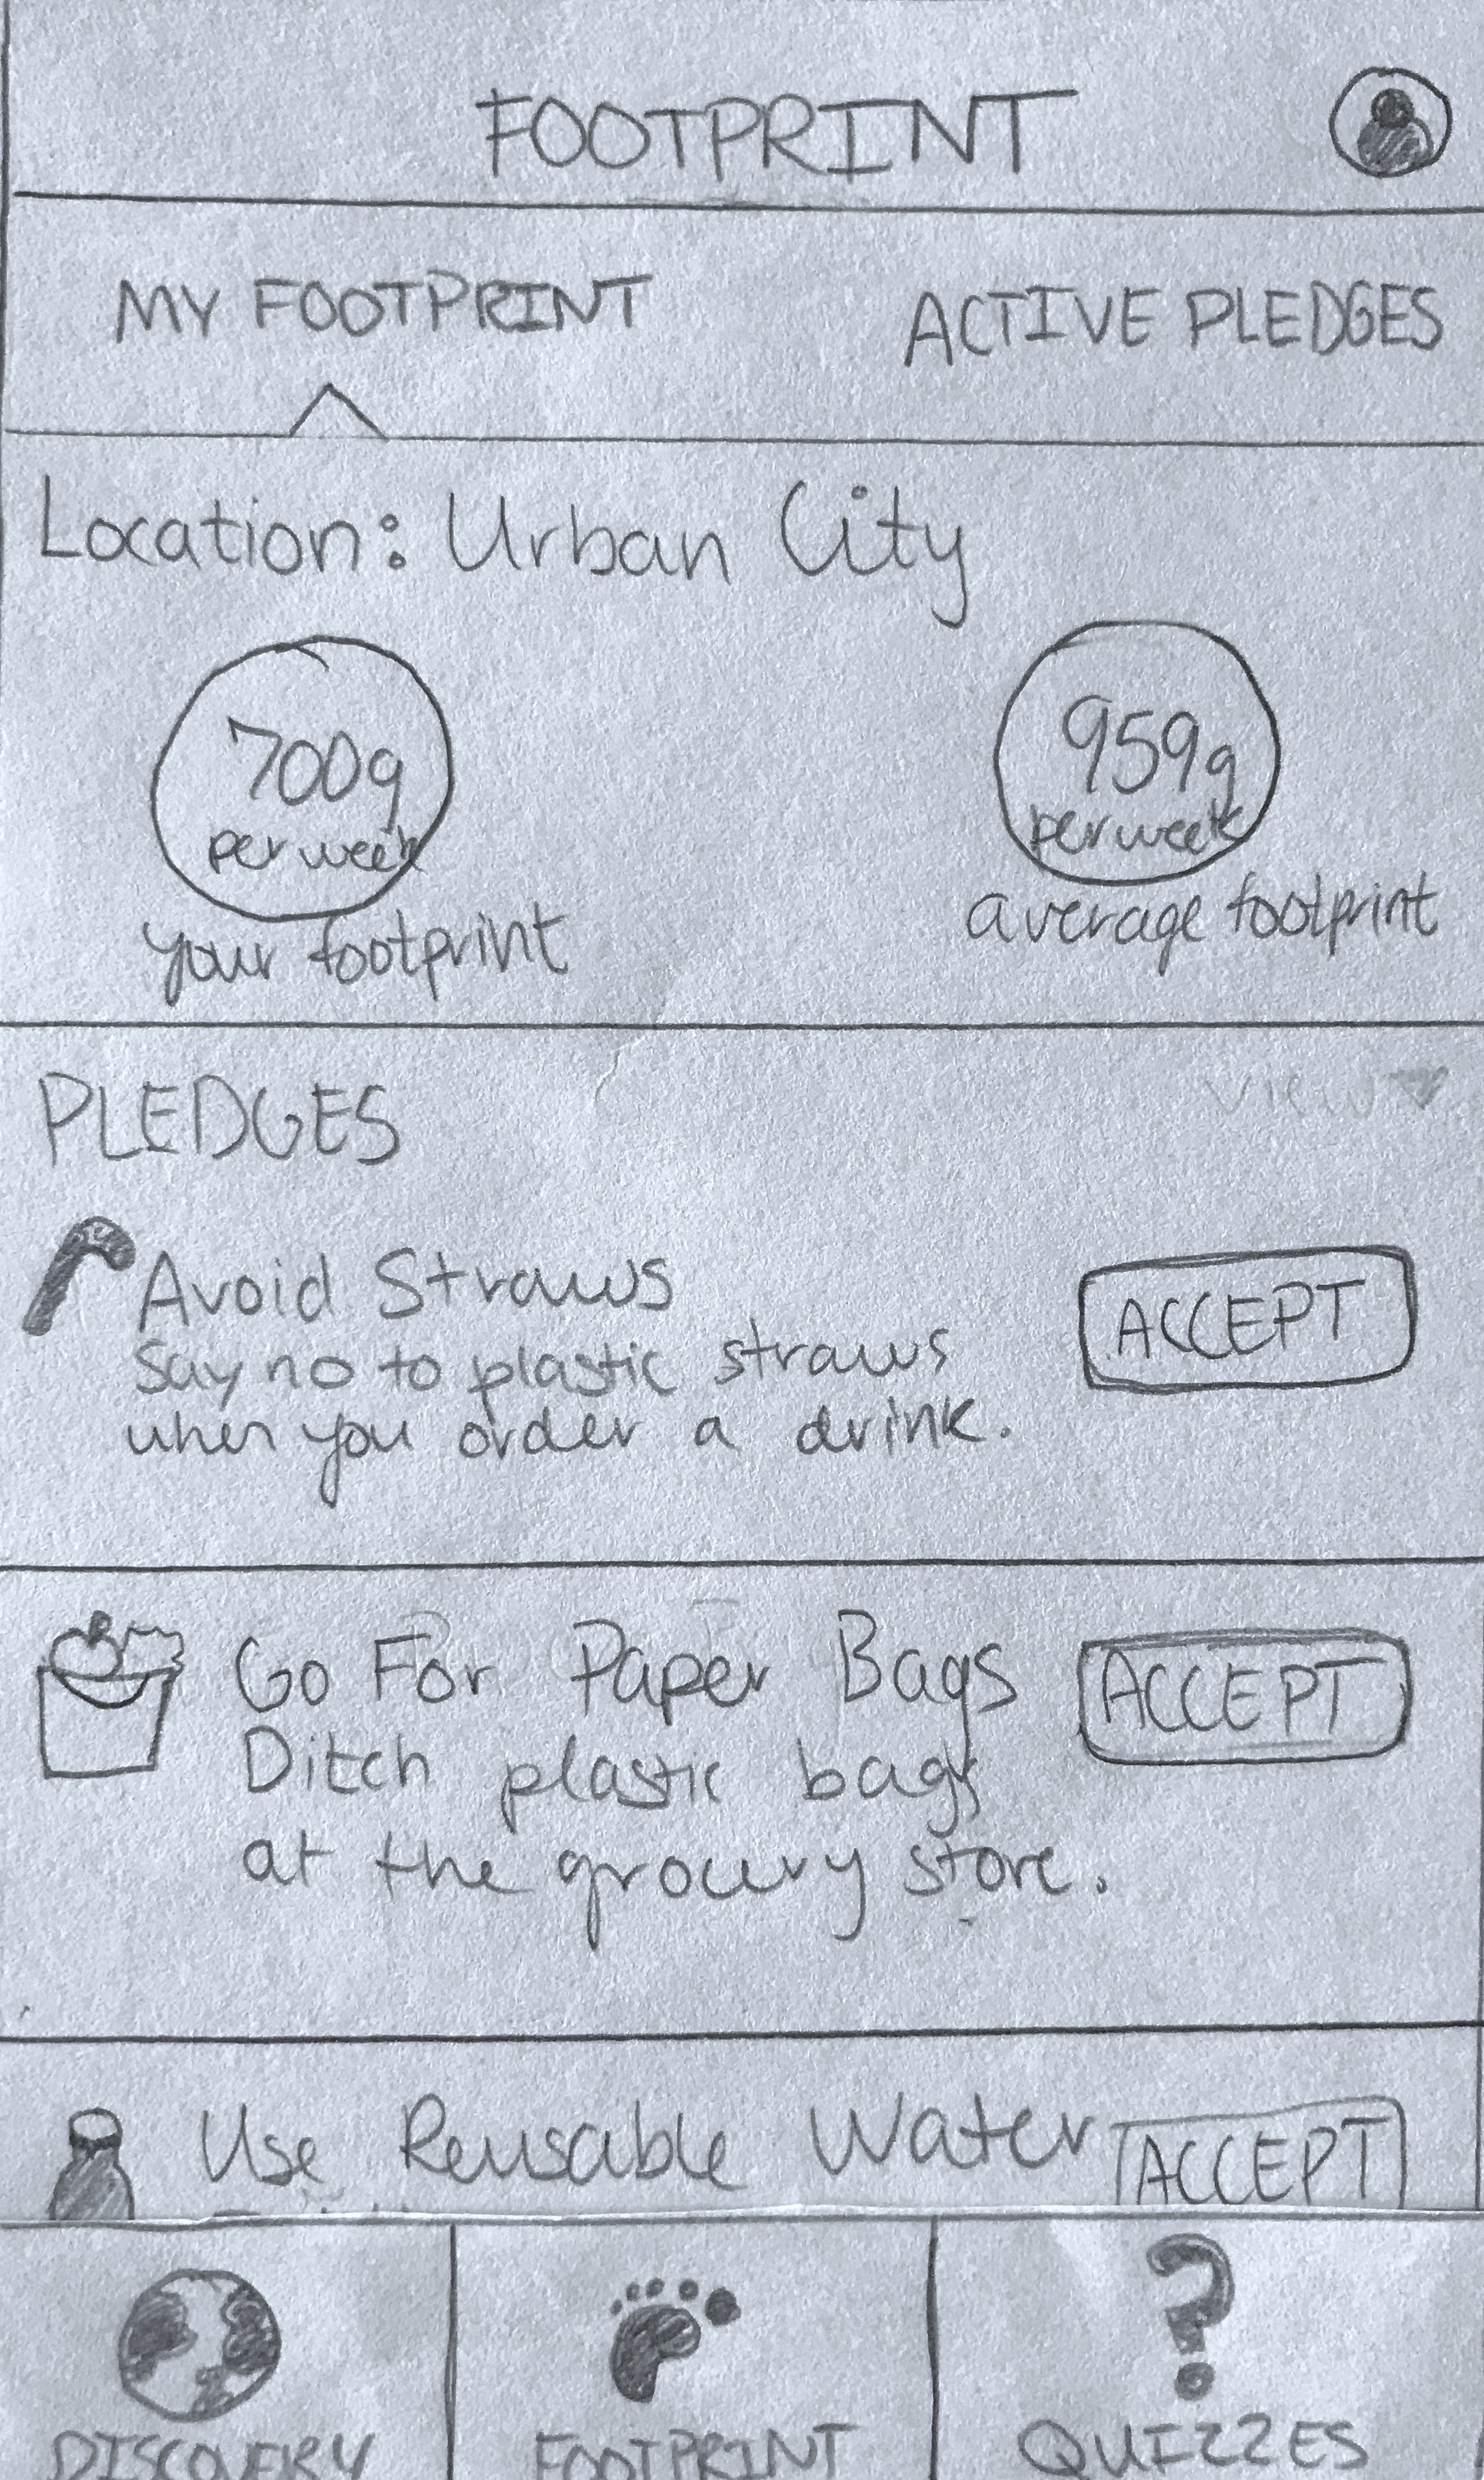 FOOTPRINT
MY FOOTPRINT ACTIVE PLEDGES
Location: Urban City
700g
per week
your footprint
959g
per week
average footprint
PLEDGES VIEW
Avoid Straws
Say no to plastic straws
when you order a drink.
ACCEPT
Go For Paper Bags
Ditch plastic bags
at the grocery store.
ACCEPT
Use Reusable Water
ACCEPT
DISCOVERY FOOTPRINT QUIZZES